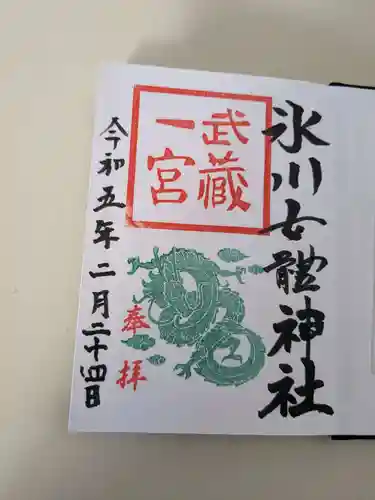 氷川女體神社
武蔵
一宮
奉拝
令和五年二月二十四日